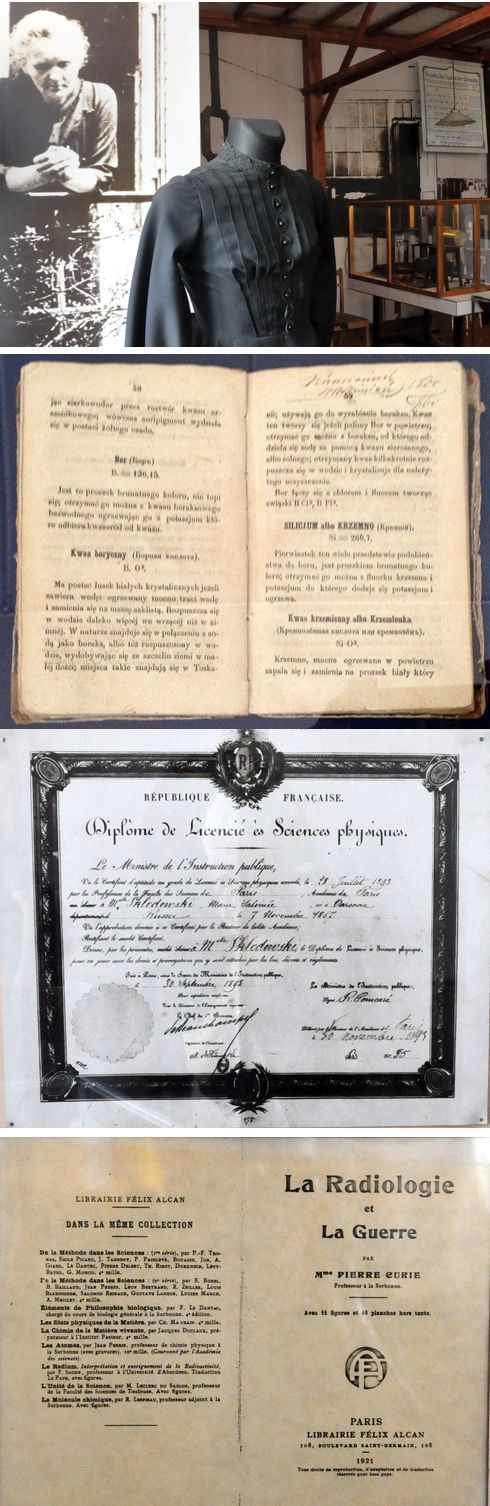 58
jąc siarkowodor przez roztwór kwasu ar-
szenikowego; wówczas auripigment wydziela
się w postaci żółtego osadu.
Bor (Боръ).
B. = 136,15.
Jest to proszek brunatnego koloru, nie topi
się; otrzymać go można z kwasu borakowego
bezwodnego ogrzewając go z potassjum któ-
re odbiera kwasoród od kwasu.
Kwas boryczny (Борная кислота).
B. O³.
Ma postać łusek białych krystalicznych jeżeli
zawiera wodę; ogrzewany mocno traci wodę
i zamienia się na massę szklistą. Rozpuszcza się
w wodzie daleko więcej we wrzącej niż w zi-
mnéj. W naturze znajduje się w połączeniu z so-
dą jako boraks, albo téż rozpuszczony w wo-
dzie, wydobywając się ze szczelin ziemi w ma-
łéj ilości; miejsca takie znajdują się w Toska-
59
nii; używają go do wyrabiania boraksu. Kwas
ten tworzy się jeżeli palimy Bor w powietrzu;
otrzymać go można z boraksu, od którego od-
dziela się sodę za pomocą kwasu siarczanego,
albo solnego; otrzymany kwas kilkakrotnie roz-
puszcza się w wodzie i krystalizuje dla należy-
tego oczyszczenia.
Bor łączy się z chlorem i fluorem tworząc
związki B Cl³, B Fl³.
SILICJUM albo KRZEMNO (Кремній).
Si = 266,7.
Pierwiastek ten wiele przedstawia podobień-
stwa do boru, jest proszkiem brunatnego ko-
loru; otrzymać go można z fluorku krzemna i
potassjum do którego dodaje się potassjum i
ogrzewa.
Kwas krzemienny albo Krzemionka
(Кремнозёмная кислота или кремнозёмъ).
Si O³.
Krzemno, mocno ogrzewane w powietrzu
zapala się i zamienia na proszek biały który
RÉPUBLIQUE FRANÇAISE.
Diplôme de Licencié ès Sciences physiques.
Le Ministre de l'Instruction publique,
Vu le Certificat d'aptitude au grade de Licencié ès Sciences physiques accordé, le 28 Juillet 1893
par les Professeurs de la Faculté des Sciences de Paris Académie de Paris
à Mlle Skłodowski Marie Salomée née à Varsovie
département d Russie le 7 Novembre 1867
Vu l'approbation donnée à ce Certificat par le Recteur de ladite Académie,
Ratifiant le susdit Certificat,
Donne, par les présentes, à Mlle Skłodowski, le Diplôme de Licencié ès Sciences physiques,
pour en jouir avec les droits et prérogatives qui y sont attachés par les lois, décrets et règlements.
Fait à Paris, sous le Sceau du Ministère de l'Instruction publique,
le 30 Septembre 1893.
Le Ministre de l'Instruction publique,
Signé R. Poincaré.
Pour expédition conforme
Le Chef du Bureau
Signature de l'impétrant
Délivré par le Recteur de l'Académie de Paris
le 20 novembre 1893
No 95
LIBRAIRIE FÉLIX ALCAN
DANS LA MÊME COLLECTION
De la Méthode dans les Sciences : (1re série), par P.-F. Tho-
mas, Emile Picard, J. Tannery, P. Painlevé, Bouasse, Job, A.
Giard, Le Dantec, Pierre Delbet, Th. Ribot, Durkheim, Lévy-
Bruhl, G. Monod. 4e mille.
De la Méthode dans les Sciences : (2e série), par E. Borel,
B. Baillaud, Jean Perrin, Léon Bertrand, R. Zeiller, Louis
Blaringhem, Salomon Reinach, Gustave Lanson, Lucien March,
A. Meillet. 4e mille.
Éléments de Philosophie biologique, par F. Le Dantec,
chargé du cours de biologie générale à la Sorbonne. 4e édition.
Les Etats physiques de la Matière, par Ch. Maurain. 4e mille.
La Chimie de la Matière vivante, par Jacques Duclaux, pré-
parateur à l'Institut Pasteur. 4e mille.
Les Atomes, par Jean Perrin, professeur de chimie physique à
la Sorbonne (avec gravures). 10e mille. (Couronné par l'Académie
des sciences).
Le Radium. Interprétation et enseignement de la Radioactivité,
par F. Soddy, professeur à l'Université d'Aberdeen. Traduction
Le Pape, avec figures.
L'Unité de la Science, par M. Leclerc du Sablon, professeur
de la Faculté des Sciences de Toulouse. Avec figures.
La Molécule chimique, par R. Lespieau, professeur adjoint à la
Sorbonne. Avec figures.
La Radiologie
et
La Guerre
PAR
Mme PIERRE CURIE
Professeur à la Sorbonne.
Avec 11 figures et 16 planches hors texte.
PARIS
LIBRAIRIE FÉLIX ALCAN
108, BOULEVARD SAINT-GERMAIN, 108
1921
Tous droits de reproduction, d'adaptation et de traduction
réservés pour tous pays.